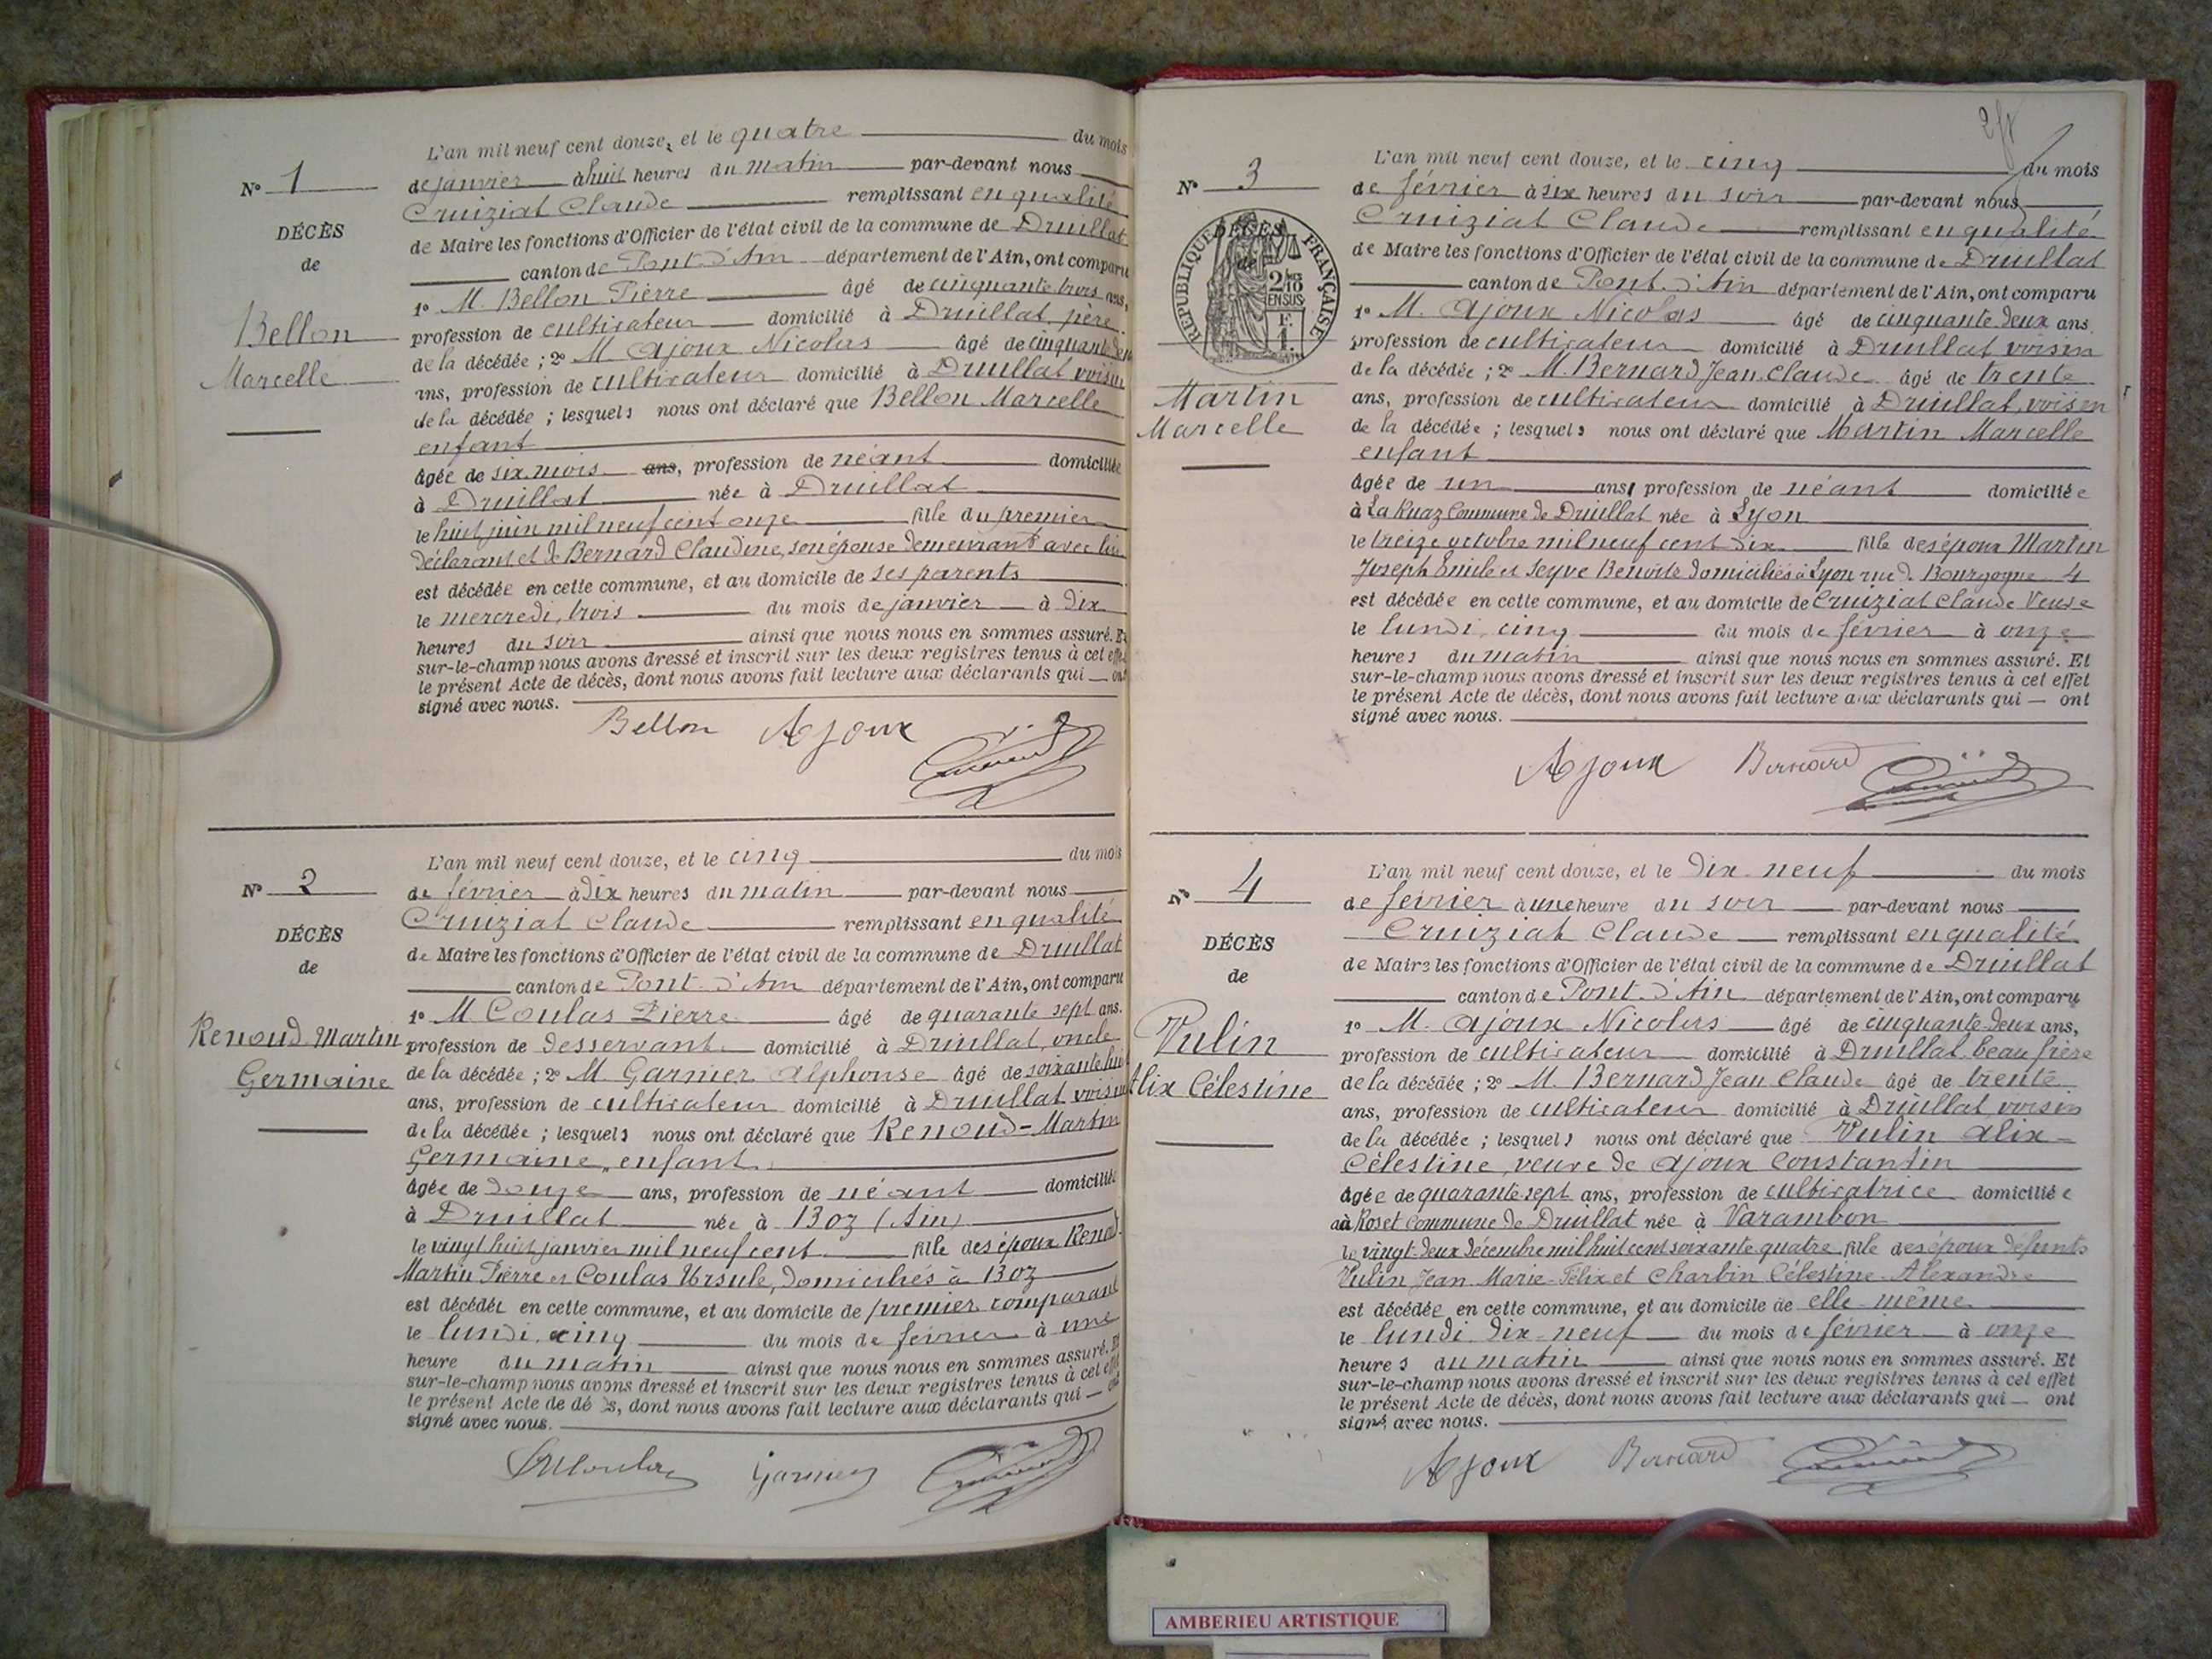 L'an mil neuf cent douze, et le quatre du mois
N° 1
de janvier à huit heures du matin par-devant nous
Cruiziat Claude remplissant en qualité
DÉCÈS
de Maire les fonctions d'Officier de l'état civil de la commune de Druillat
de
canton de Pont-d'Ain département de l'Ain, ont comparu
1° M. Bellon Pierre âgé de cinquante trois ans,
Bellon
profession de cultivateur domicilié à Druillat, père
Marcelle
de la décédée ; 2° M. Ajoux Nicolas âgé de cinquante deux
ans, profession de cultivateur domicilié à Druillat voisin
de la décédée ; lesquels nous ont déclaré que Bellon Marcelle
enfant
âgée de six mois ans, profession de néant domiciliée
à Druillat née à Druillat
le huit juin mil neuf cent onze fille du premier
déclarant et de Bernard Claudine, son épouse demeurant avec lui
est décédée en cette commune, et au domicile de ses parents
le mercredi, trois du mois de janvier à dix
heures du soir ainsi que nous nous en sommes assuré. Et
sur-le-champ nous avons dressé et inscrit sur les deux registres tenus à cet effet
le présent Acte de décès, dont nous avons fait lecture aux déclarants qui ont
signé avec nous.
Bellon Ajoux
L'an mil neuf cent douze, et le cinq du mois
N° 2
de février à dix heures du matin par-devant nous
Cruiziat Claude remplissant en qualité
DÉCÈS
de Maire les fonctions d'Officier de l'état civil de la commune de Druillat
de
canton de Pont-d'Ain département de l'Ain, ont comparu
1° M. Coulas Pierre âgé de quarante sept ans.
Renoud-Martin
profession de desservant domicilié à Druillat, oncle
Germaine
de la décédée ; 2° M. Garnier Alphonse âgé de soixante huit
ans, profession de cultivateur domicilié à Druillat voisin
de la décédée ; lesquels nous ont déclaré que Renoud-Martin
Germaine, enfant
âgée de douze ans, profession de néant domiciliée
à Druillat née à Boz (Ain)
le vingt huit janvier mil neuf cent fille des époux Renoud
Martin Pierre et Coulas Ursule, domiciliés à Boz
est décédée en cette commune, et au domicile de premier comparant
le lundi, cinq du mois de février à une
heure du matin ainsi que nous nous en sommes assuré. Et
sur-le-champ nous avons dressé et inscrit sur les deux registres tenus à cet effet
le présent Acte de décès, dont nous avons fait lecture aux déclarants qui ont
signé avec nous.
Garnier
L'an mil neuf cent douze, et le cinq du mois
N° 3
de février à six heures du soir par-devant nous
Cruiziat Claude remplissant en qualité
RÉPUBLIQUE FRANÇAISE
DÉCÈS
de
2/10 EN SUS
de Maire les fonctions d'Officier de l'état civil de la commune de Druillat
canton de Pont-d'Ain département de l'Ain, ont comparu
1° M. Ajoux Nicolas âgé de cinquante-deux ans.
profession de cultivateur domicilié à Druillat voisin
de la décédée ; 2° M. Bernard Jean Claude âgé de trente
Martin
ans, profession de cultivateur domicilié à Druillat, voisin
Marcelle
de la décédée ; lesquels nous ont déclaré que Martin Marcelle
enfant
âgée de un ans, profession de néant domiciliée
à La Ruaz Commune de Druillat née à Lyon
le treize octobre mil neuf cent dix fille des époux Martin
Joseph Emile et Seyve Benoite domiciliés à Lyon rue de Bourgogne 4
est décédée en cette commune, et au domicile de Cruiziat Claude Veuve
le lundi, cinq du mois de février à onze
heures du matin ainsi que nous nous en sommes assuré. Et
sur-le-champ nous avons dressé et inscrit sur les deux registres tenus à cet effet
le présent Acte de décès, dont nous avons fait lecture aux déclarants qui ont
signé avec nous.
Ajoux Bernard
L'an mil neuf cent douze, et le dix-neuf du mois
N° 4
de février à une heure du soir par-devant nous
Cruiziat Claude remplissant en qualité
DÉCÈS
de Maire les fonctions d'Officier de l'état civil de la commune de Druillat
de
canton de Pont-d'Ain département de l'Ain, ont comparu
1° M. Ajoux Nicolas âgé de cinquante-deux ans,
Vulin
profession de cultivateur domicilié à Druillat beau frère
Alix Célestine
de la décédée ; 2° M. Bernard Jean Claude âgé de trente
ans, profession de cultivateur domicilié à Druillat, voisin
de la décédée ; lesquels nous ont déclaré que Vulin Alix-
Célestine, veuve de Ajoux Constantin
âgée de quarante-sept ans, profession de cultivatrice domiciliée
à Roset Commune de Druillat née à Varambon
le vingt-deux décembre mil huit cent soixante quatre fille des époux défunts
Vulin Jean-Marie-Félix et Charbin Célestine-Alexandre
est décédée en cette commune, et au domicile de elle-même
le lundi dix-neuf du mois de février à onze
heures du matin ainsi que nous nous en sommes assuré. Et
sur-le-champ nous avons dressé et inscrit sur les deux registres tenus à cet effet
le présent Acte de décès, dont nous avons fait lecture aux déclarants qui ont
signé avec nous.
Ajoux Bernard
AMBERIEU ARTISTIQUE